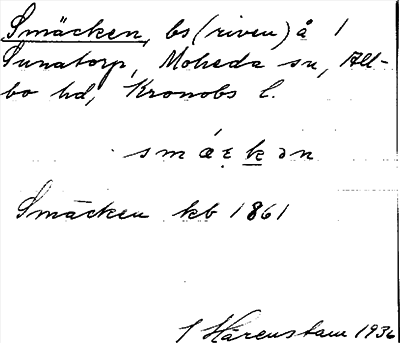 Smäcken, bs(riven) å 1
Sunatorp, Moheda sn, All-
bo hd, Kronobs l.
smáɛkən
Smäcken kb 1861
Härenstam 1936